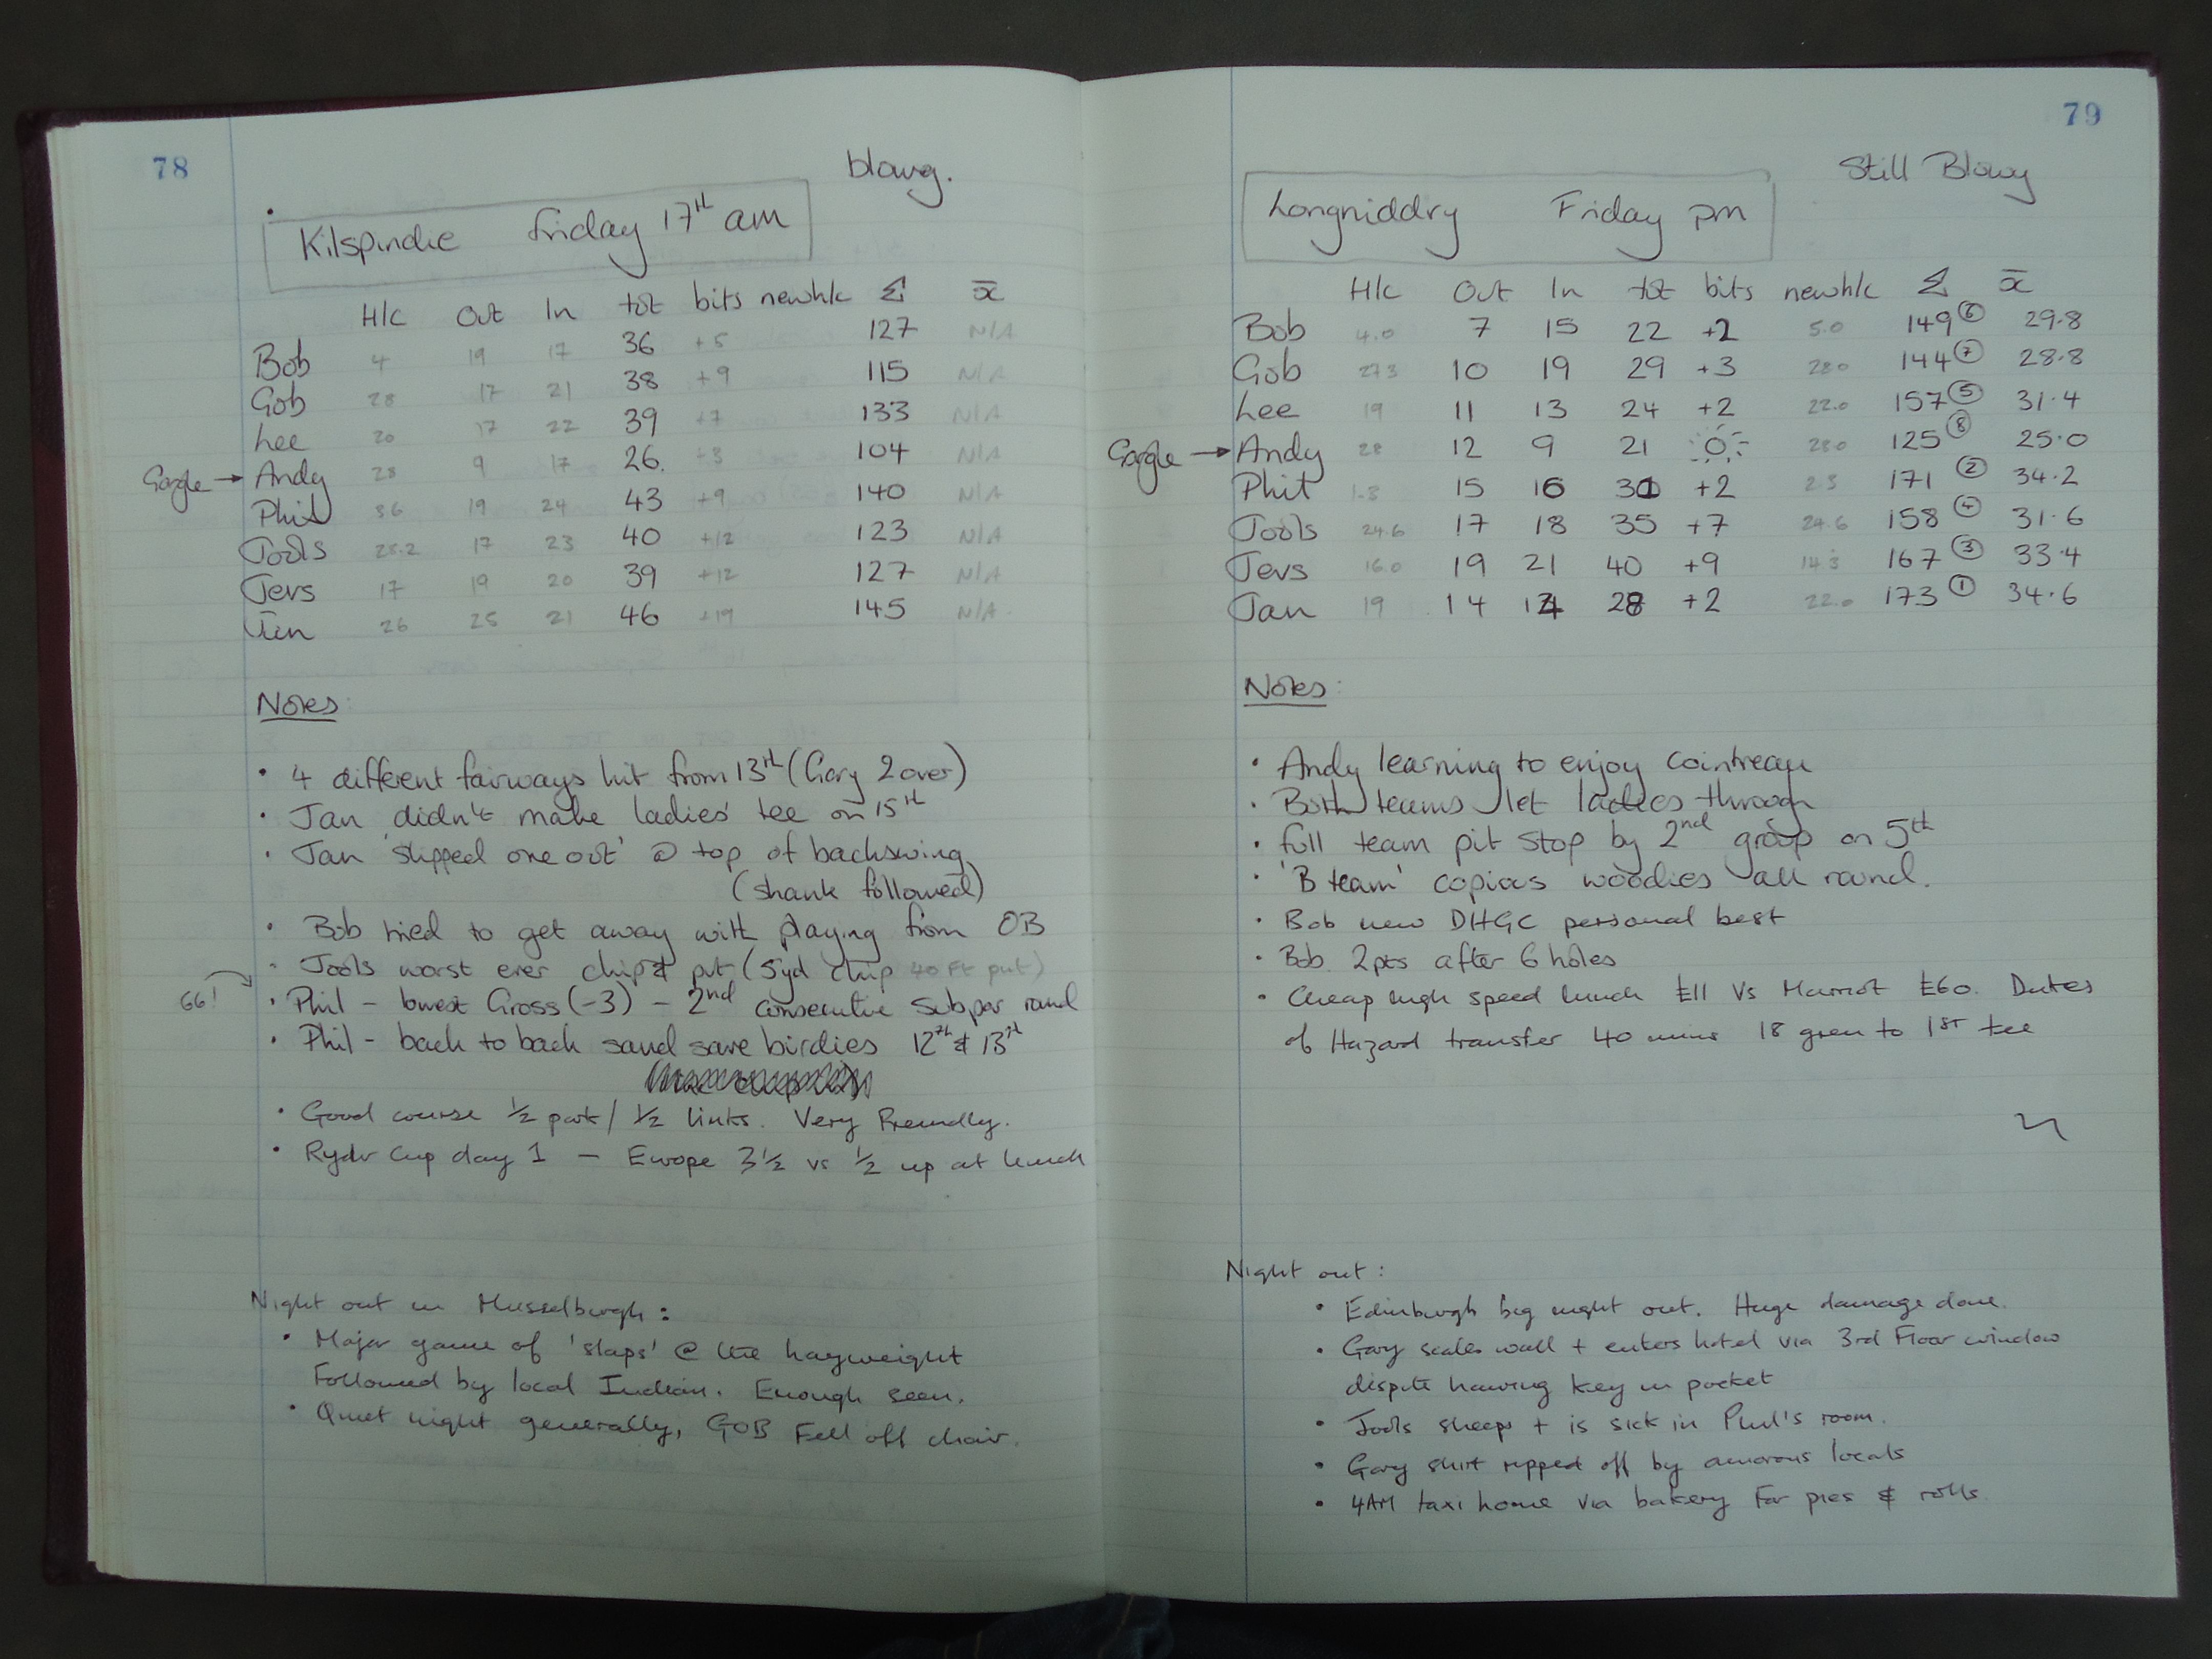 78
blowy.
Kilspindie Friday 17th am
H/c Out In tot bits newh/c Σ x̄
Bob 4 19 17 36 +5 127 N/A
Gob 28 17 21 38 +9 115 N/A
Lee 20 17 22 39 +7 133 N/A
Google → Andy 28 9 17 26. +3 104 N/A
Phil 36 19 24 43 +9 140 N/A
Jools 28.2 17 23 40 +12 123 N/A
Jevs 17 19 20 39 +12 127 N/A
Jan 26 25 21 46 +19 145 N/A
Notes:
• 4 different fairways hit from 13th (Gary 2 over)
• Jan didn't make ladies' tee on 15th
• Jan 'slipped one out' @ top of backswing
(shank followed)
• Bob tried to get away with playing from OB
• Jools worst ever chip & put (5yd chip 40 ft put)
66! • Phil - lowest Gross (-3) - 2nd consecutive sub par round
• Phil - back to back sand save birdies 12th & 13th
• Good course ½ park / ½ links. Very Friendly.
• Ryder Cup day 1 - Europe 3½ vs ½ up at lunch
Night out in Musselburgh:
• Major game of 'slaps' @ the hayweight
Followed by local Indian. Enough seen.
• Quiet night generally, GOB Fell off chair.
79
Still Blowy
Longniddry Friday pm
H/c Out In tot bits newh/c Σ x̄
Bob 4.0 7 15 22 +2 5.0 149 ⑥ 29.8
Gob 27.3 10 19 29 +3 28.0 144 ⑦ 28.8
Lee 19 11 13 24 +2 22.0 157 ⑤ 31.4
Google → Andy 28 12 9 21 0 28.0 125 ⑧ 25.0
Phil 1.3 15 16 31 +2 2.3 171 ② 34.2
Jools 24.6 17 18 35 +7 24.6 158 ④ 31.6
Jevs 16.0 19 21 40 +9 14.3 167 ③ 33.4
Jan 19 14 14 28 +2 22.0 173 ① 34.6
Notes:
• Andy learning to enjoy cointreau
• Both teams let ladies through
• full team pit stop by 2nd group on 5th
• 'B team' copious woodies all round.
• Bob new DHGC personal best
• Bob 2pts after 6 holes
• Cheap high speed lunch £11 vs Marriot £60. Dukes
of Hazard transfer 40 mins 18 green to 1st tee
Night out:
• Edinburgh big night out. Huge damage done.
• Gary scales wall + enters hotel via 3rd Floor window
dispite having key in pocket
• Jools sleeps + is sick in Phil's room.
• Gary shirt ripped off by amorous locals
• 4AM taxi home via bakery For pies & rolls.